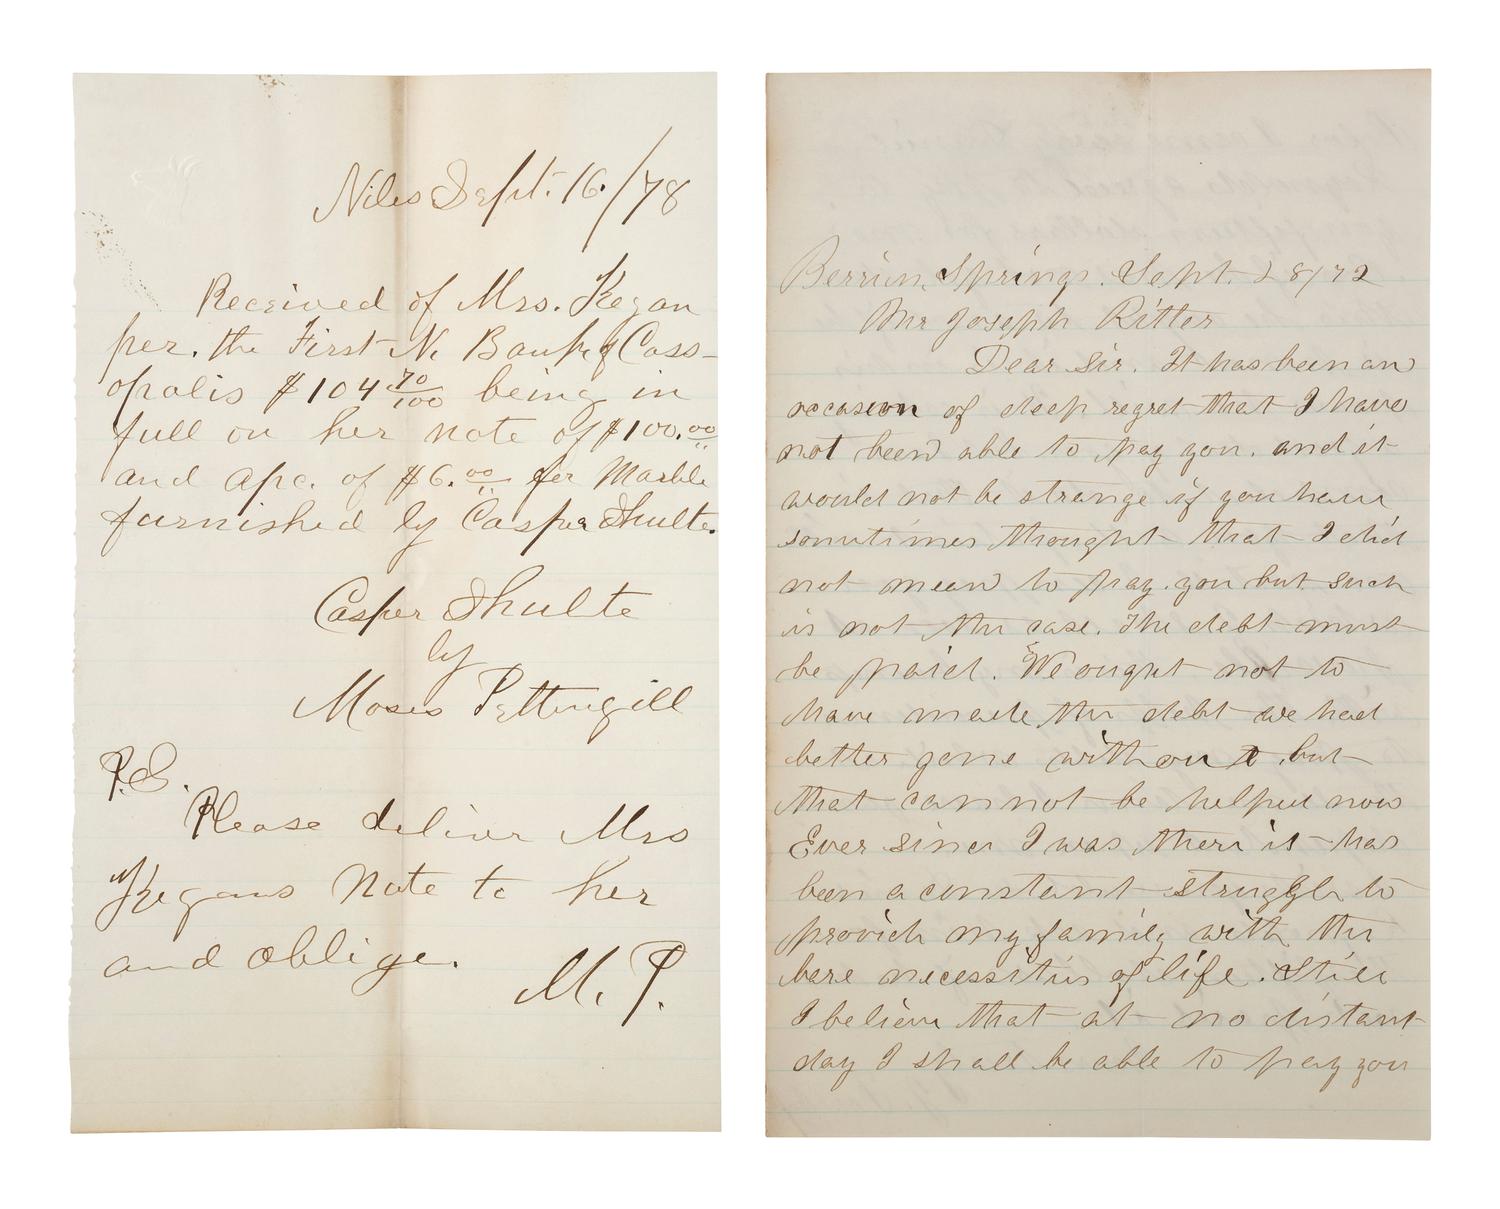 Niles Sept. 16./78
Received of Mrs. Kegan
per. the First N. Bank of Cass-
opolis $104 70/100 being in
full on her note of $100.00
and apc. of $6.00 for Marble
furnished by Casper Shulte.
Casper Shulte
by
Moses Pettengill
P.S.
Please deliver Mrs
Kegans Note to her
and oblige.
M. P.
Berrien Springs. Sept. 28/72
Mr Joseph Ritter
Dear Sir. It has been an
occasion of deep regret that I have
not been able to pay you. and it
would not be strange if you have
sometimes thought that I did
not mean to pay you but such
is not the case. The debt must
be paid. We ought not to
have made the debt we had
better gone without but
that can not be helped now
Ever since I was there it has
been a constant struggle to
provide my family with the
bare necessities of life. Still
I believe that at no distant
day I shall be able to pay you